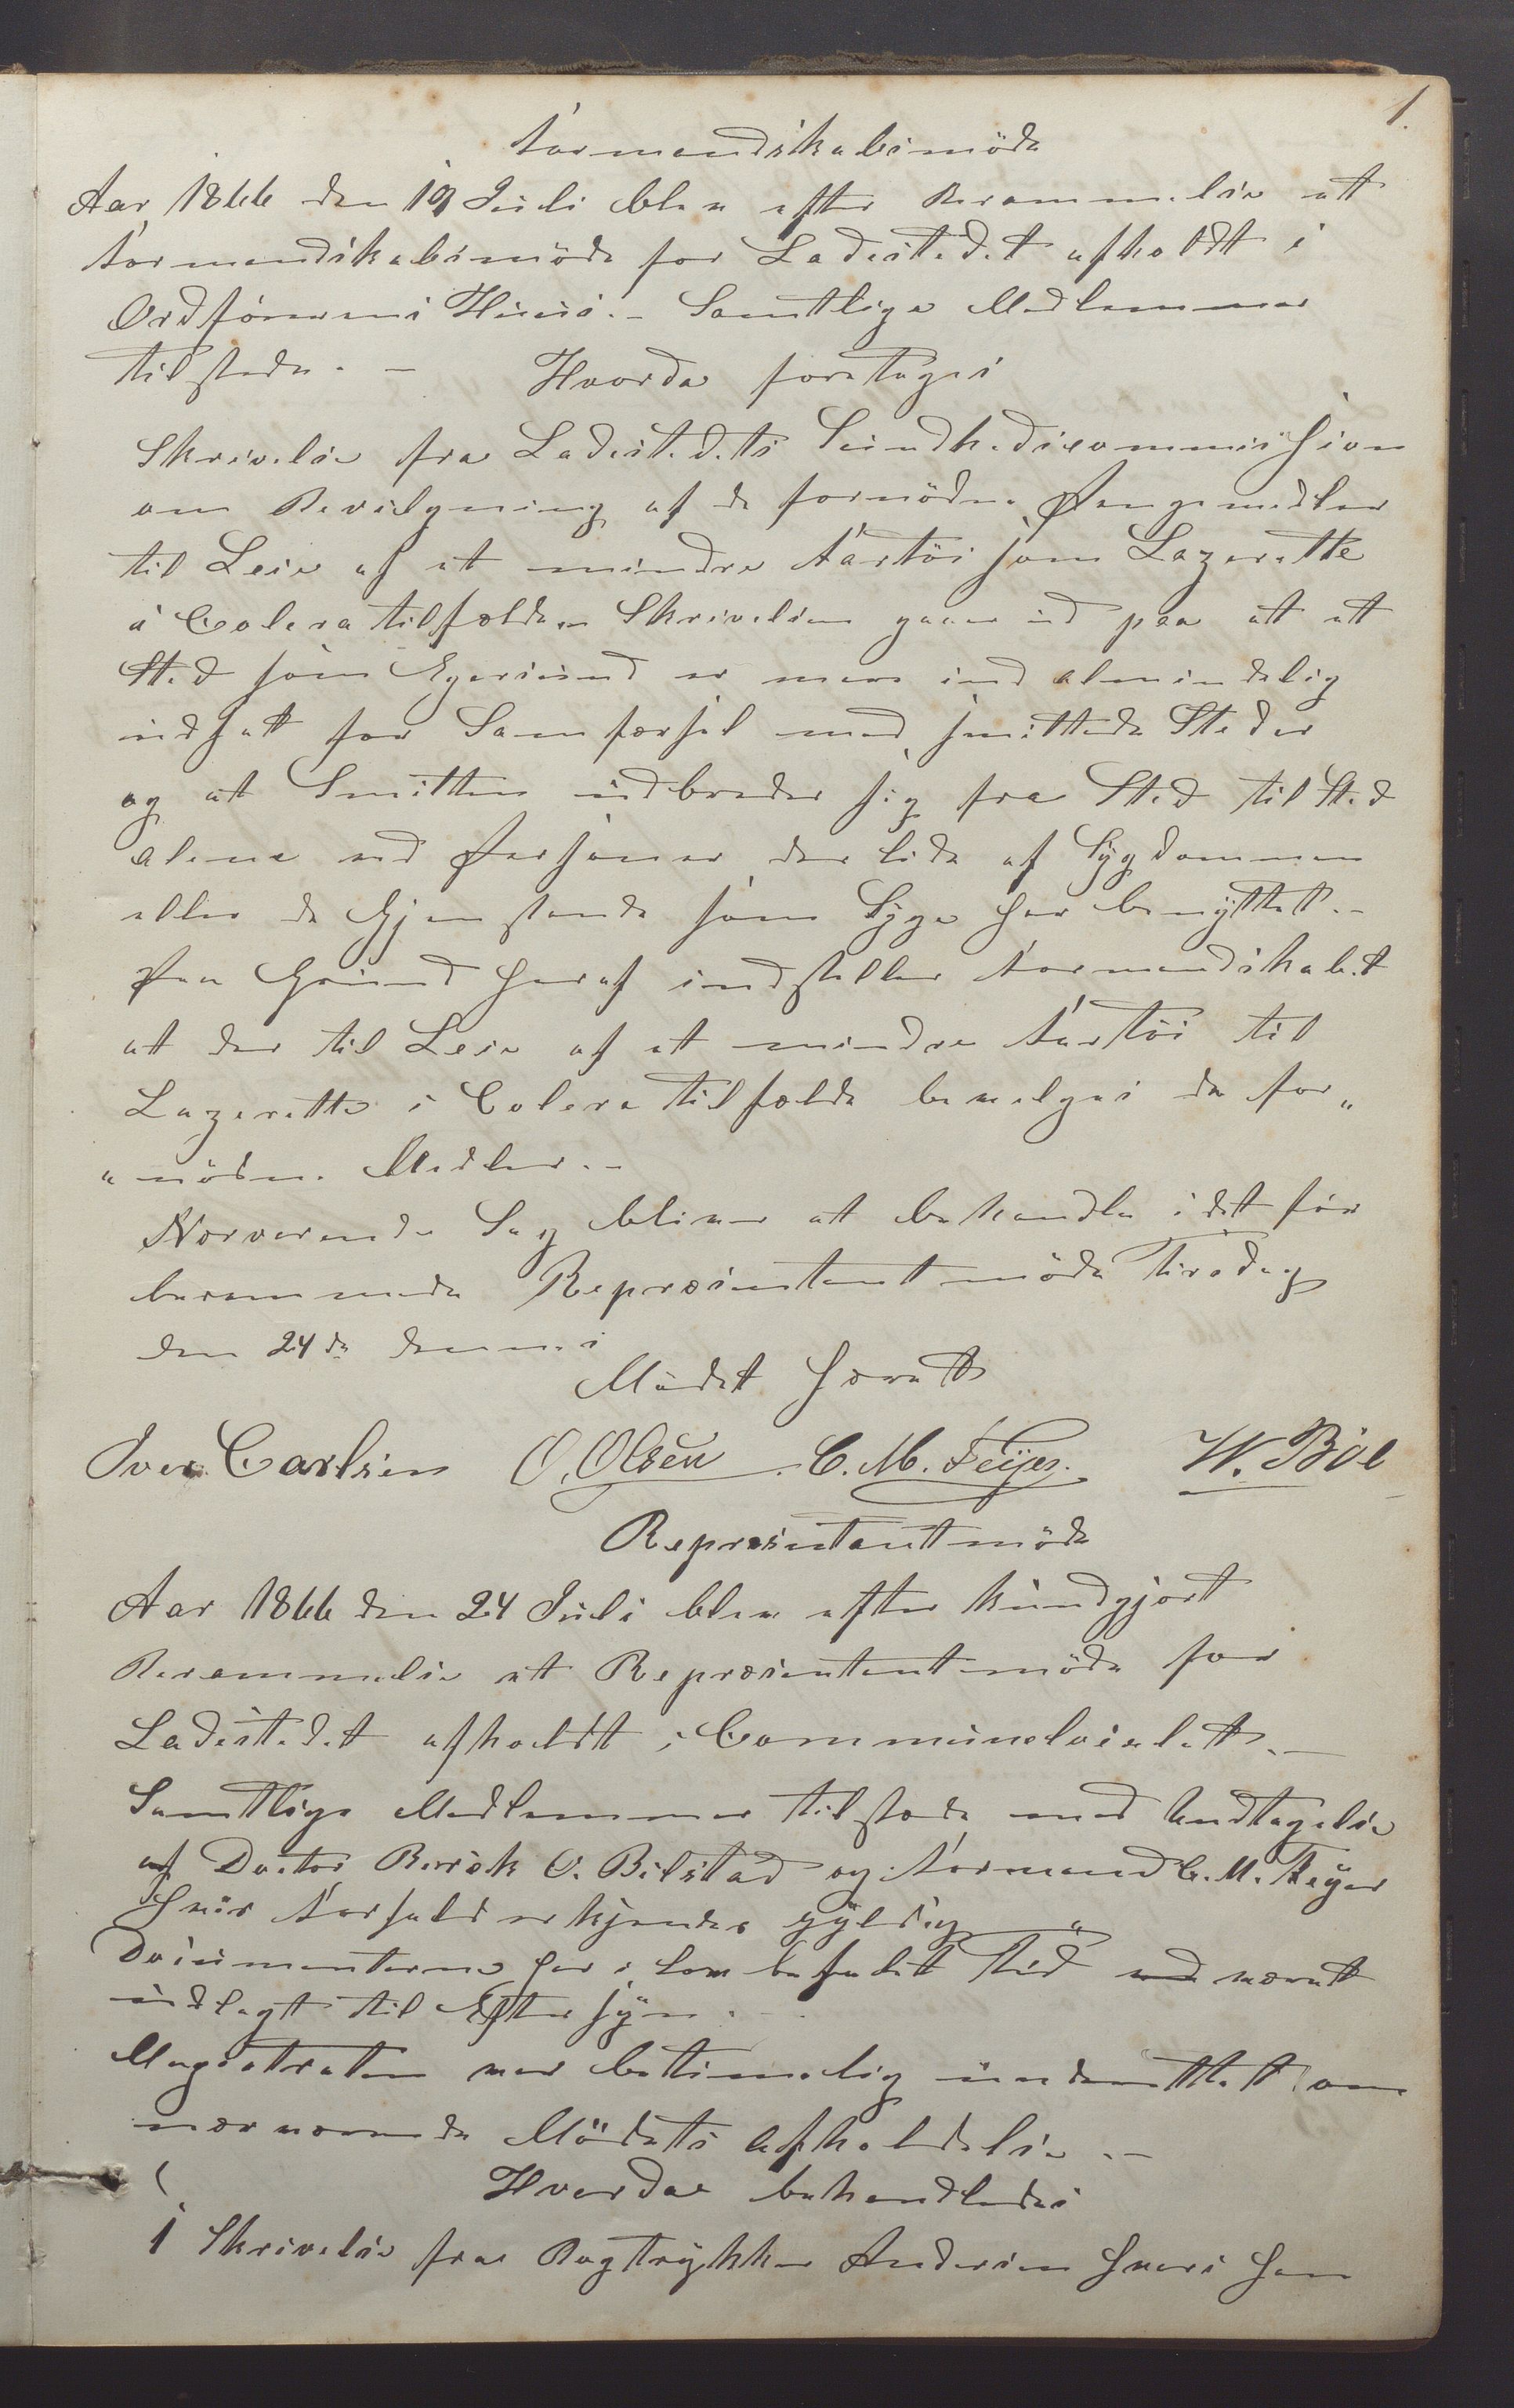 1.
Formandskabsmöde
Aar 1866 den 19 Juli blev efter Berammelse et
Formandskabsmöde for Ladestedet afholdt i
Ordförerens Huus. - Samtlige Medlemmer
tilstede. - Hvorda foretages
Skrivelse fra Ladestedets Sundhedscommission
om Bevilgning af de fornödne Pengemidler
til Leie af et mindre Fartöi som Lazarette
i Coleratilfælde. Skrivelsen gaar ud paa at et
Sted som Egersund er mere end almindelig
udsat for Samfærsel med smittede Steder
og at Smitten udbreder sig fra Sted til Sted
alene ved Personer der lide af Sygdommen
eller de Gjenstande som Syge har benyttet. -
Paa Grund heraf indstiller Formandskabet
at der til Leie af et mindre Fartöi til
Lazarette i Colera tilfælde bevilges de for„
„nödne Midler. -
Nærværende Sag bliver at behandle i det for
berammede Repræsentantmöde Tirsdag
den 24de dennes
Mödet hævet
Iver Carlsen O. Olsen C. M. Feyer. W. Böe
Repræsentantmöde
Aar 1866 den 24 Juli blev efter kundgjort
Berammelse et Repræsentantmöde for
Ladestedet afholdt i Communelocalet. -
Samtlige Medlemmer tilstede med Undtagelse
af Doctor O. Bilstad og Formand C. M. Feyer
hvis Forfald erkjendes gyldig
Documenterne har i lov befalet Tid været
udlagt til Eftersyn.
Magistraten var betimelig underrettet om
nærværende Mödets Afholdelse. -
Hvorda behandledes
1 Skrivelse fra Bogtrykker Andersen hvori han